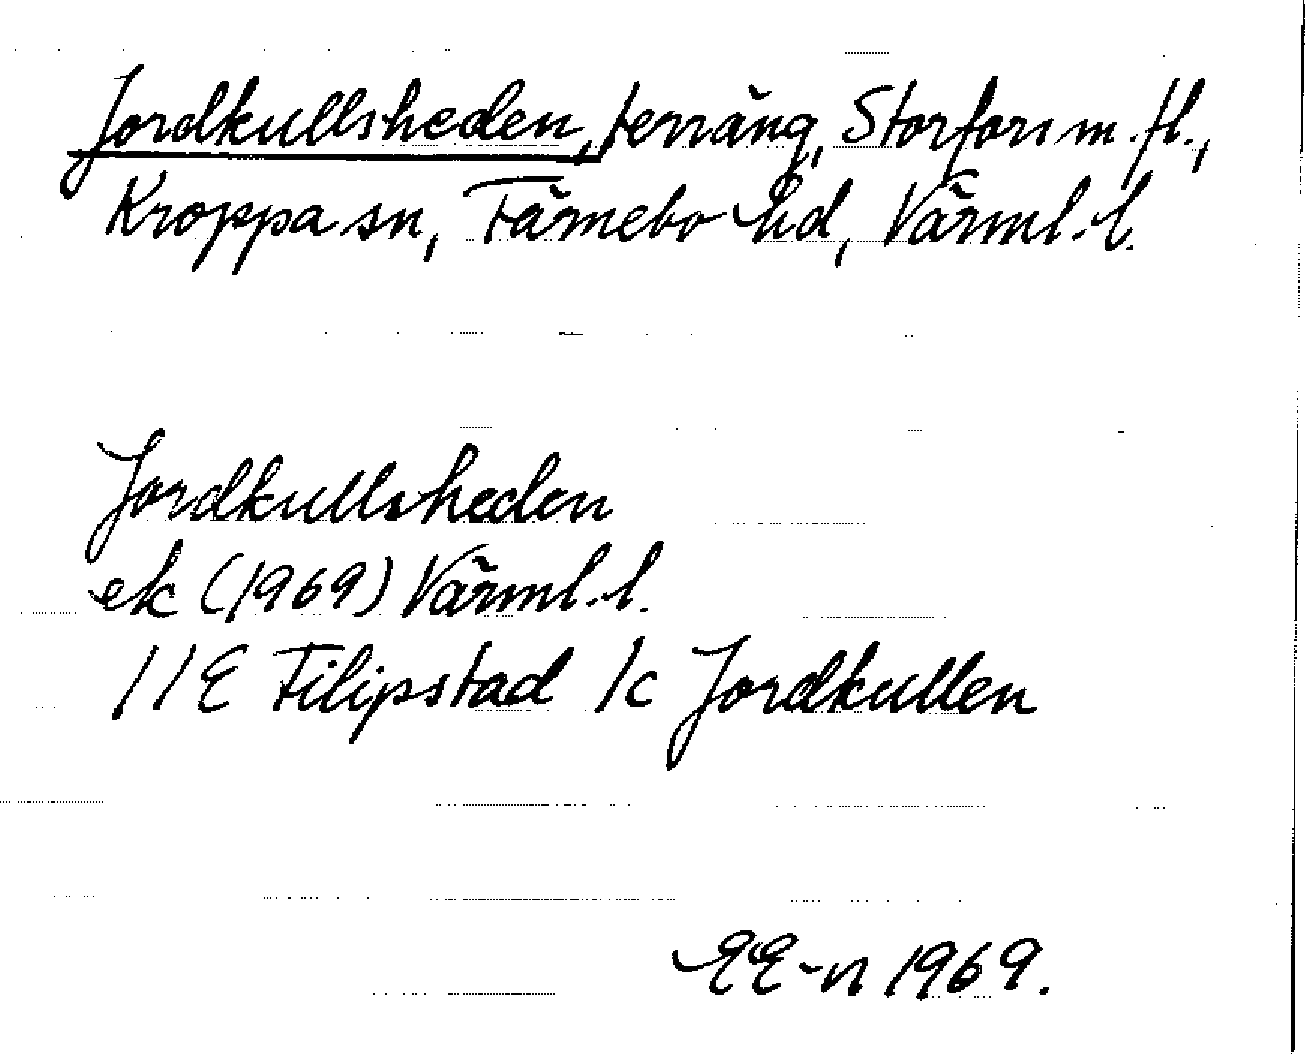 Jordkullsheden, terräng, Storfors m. fl.,
Kroppa sn, Färnebo hd, Värml. l.
Jordkullsheden
ek (1969) Värml. l.
11E Filipstad 1c Jordkullen
EE-n 1969.